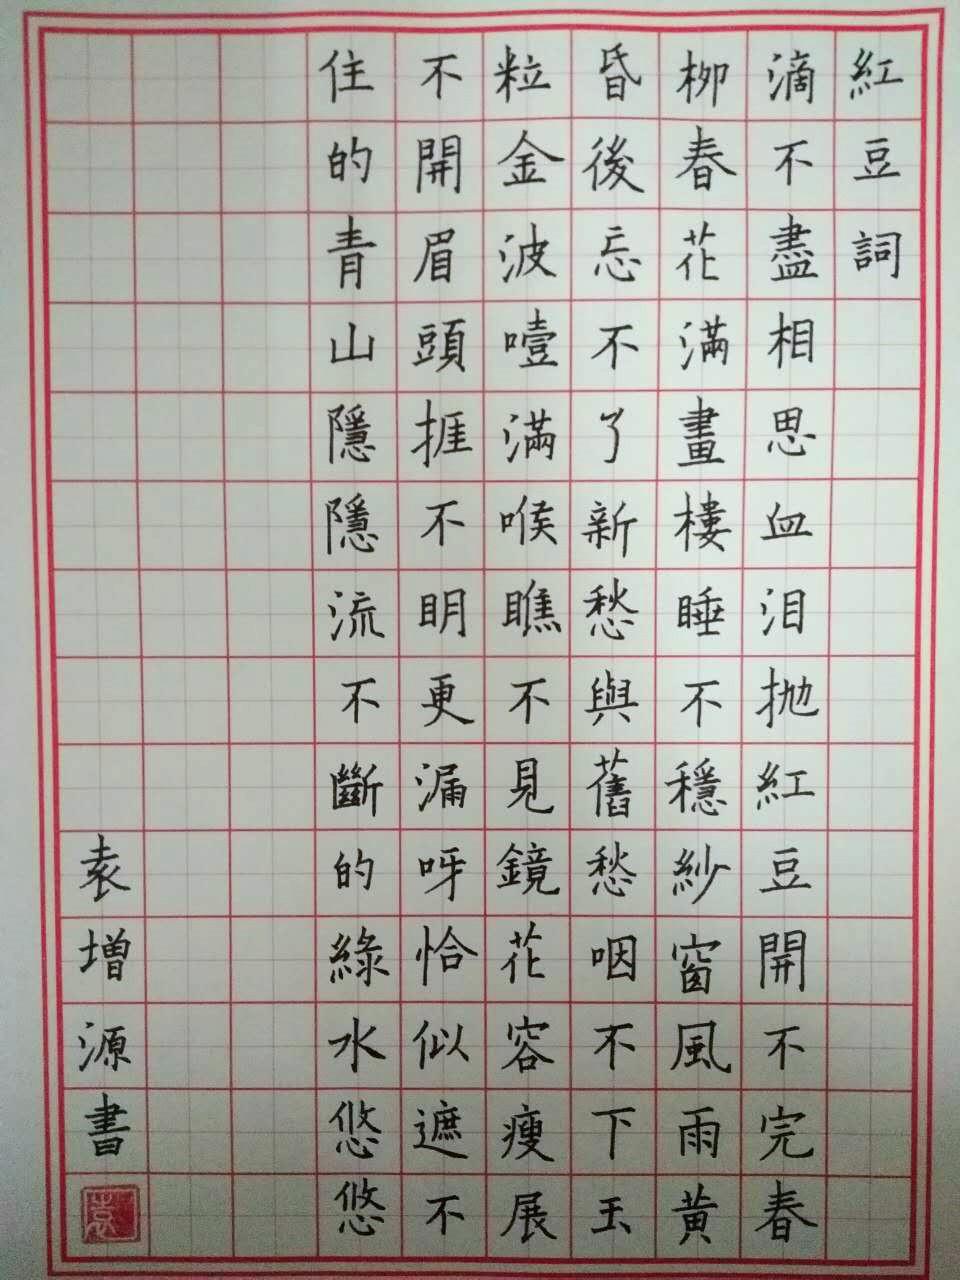 紅豆詞
滴不盡相思血泪抛紅豆開不完春
柳春花滿畫樓睡不穩紗窗風雨黄
昏後忘不了新愁與舊愁咽不下玉
粒金波噎滿喉瞧不見鏡花容瘦展
不開眉頭捱不明更漏呀恰似遮不
住的青山隱隱流不斷的綠水悠悠
袁增源書